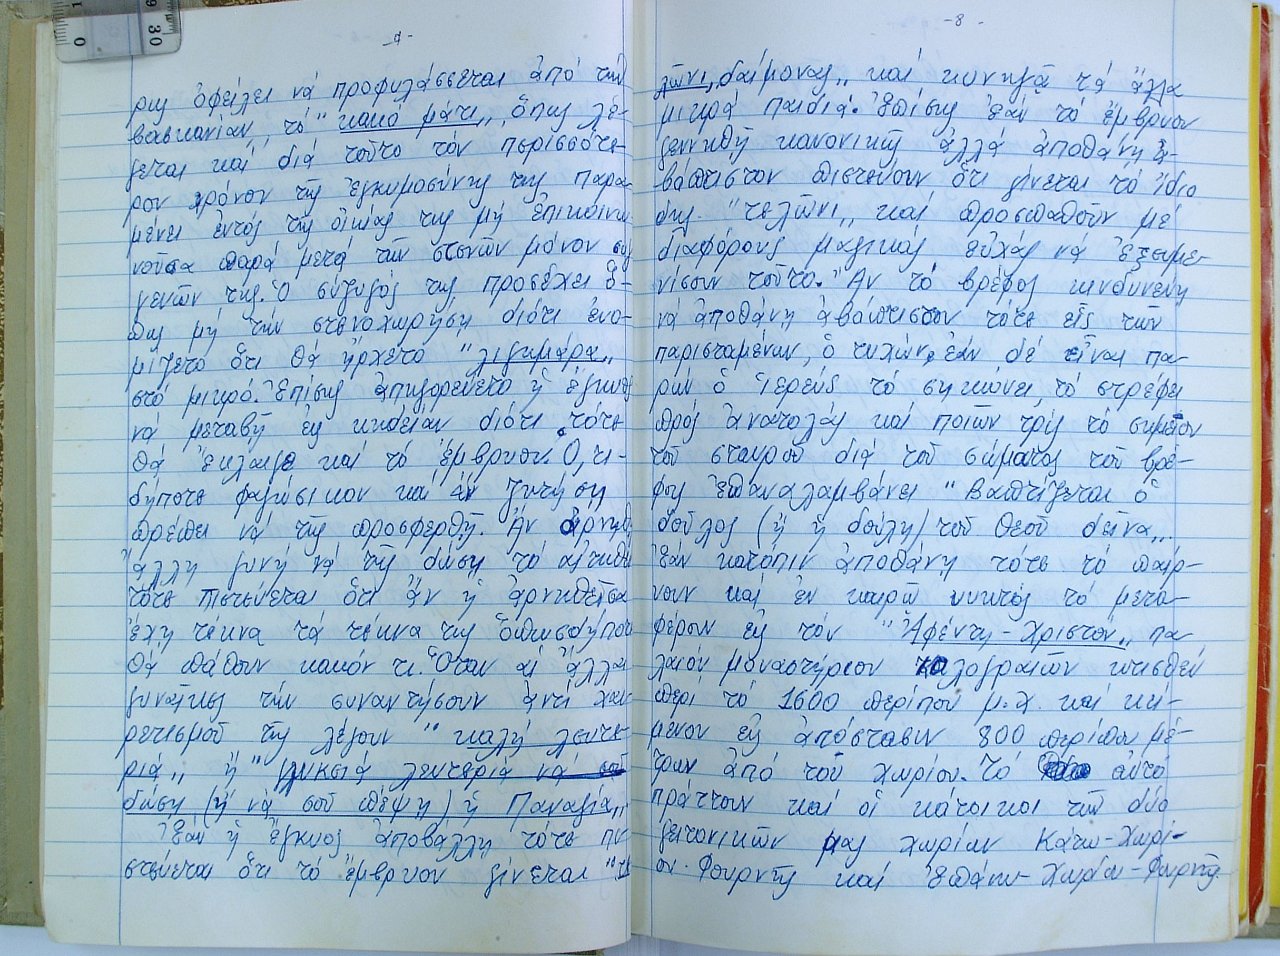 -7-
ρις ὀφείλει νά προφυλάσσεται ἀπό τήν
βασκανίαν, τό "κακό μάτι,, ὅπως λέ-
γεται καί διά τοῦτο τόν περισσότε-
ρον χρόνον τῆς ἐγκυμοσύνης της παρα-
μένει ἐντός τῆς οἰκίας της μή ἐπικοινω-
νοῦσα παρά μετά τῶν στενῶν μόνον συγ
γενῶν της. Ὁ σύζυγός της προσέχει ὅ-
πως μή τήν στενοχωρήση διότι ἐνο-
μίζετο ὅτι θά ἤρχετο "λιγωμάρα,,
στό μικρό. Ἐπίσης ἀπηγορεύετο ἡ ἔγκυος
νά μεταβῆ εἰς κηδείαν διότι τότε
θά ἔκλαιγε καί τό ἔμβρυον. Ὅ,τι-
δήποτε φαγώσιμον καί ἄν ζητήση
πρέπει νά τῆς προσφερθῆ. Ἄν ἀρνηθῆ
ἄλλη γυνή νά τῆς δώση τό αἰτηθέν
τότε πιστεύεται ὅτι ἄν ἡ ἀρνηθεῖσα
ἔχη τέκνα τά τέκνα της ὁπωσδήποτε
θά πάθουν κακόν τι. Ὅταν αἱ ἄλλαι
γυναῖκες τήν συναντήσουν ἀντί χαι-
ρετισμοῦ τῆς λέγουν "καλή λευτε-
ριά,, ἤ "γλυκειά λευτεριά νά σοῦ
δώση (ἤ νά σοῦ πέψη) ἡ Παναγία,,
Ἐάν ἡ ἔγκυος ἀποβάλλη τότε πι-
στεύεται ὅτι τό ἔμβρυον γίνεται "τε
-8-
λῶνι,, δαίμονας,, καί κυνηγᾶ τά ἄλλα
μικρά παιδιά. Ἐπίσης ἐάν τό ἔμβρυον
γεννηθῆ κανονικῶς ἀλλά ἀποθάνη ἀ-
βάπτιστον πιστεύουν ὅτι γίνεται τό ἴδιο
δηλ. "τελῶνι,, καί προσπαθοῦν μέ
διαφόρους μαγικάς εὐχάς νά ἐξευμε-
νίσουν τοῦτο. Ἄν τό βρέφος κινδυνεύη
νά ἀποθάνη ἀβάπτιστον τότε εἷς τῶν
παρισταμένων, ὁ τυχών, ἐάν δέ εἶναι πα-
ρών ὁ ἱερεύς τό σηκώνει, τό στρέφει
πρός ἀνατολάς καί ποιῶν τρίς τό σημεῖον
τοῦ σταυροῦ διά τοῦ σώματος τοῦ βρέ-
φους ἐπαναλαμβάνει "Βαπτίζεται ὁ
δοῦλος (ἤ ἡ δούλη) τοῦ Θεοῦ δεῖνα,,.
Ἐάν κατόπιν ἀποθάνη τότε τό παίρ-
νουν καί ἐν καιρῶ νυκτός τό μετα-
φέρουν εἰς τόν "Ἀφέντη-Χριστόν,, πα
λαιόν μοναστήριον καλογραιῶν κτισθέν
περί τό 1600 περίπου μ.χ. καί κεί-
μενον εἰς ἀπόστασιν 800 περίπου μέ-
τρων ἀπό τοῦ χωρίου. Τό αὐτό
πράττουν καί οἱ κάτοικοι τῶν δύο
γειτονικῶν μας χωρίων Κάτω-Χωρί-
ον-Φουρνῆς καί Ἐπάνω-Χωρίον-Φουρνῆς